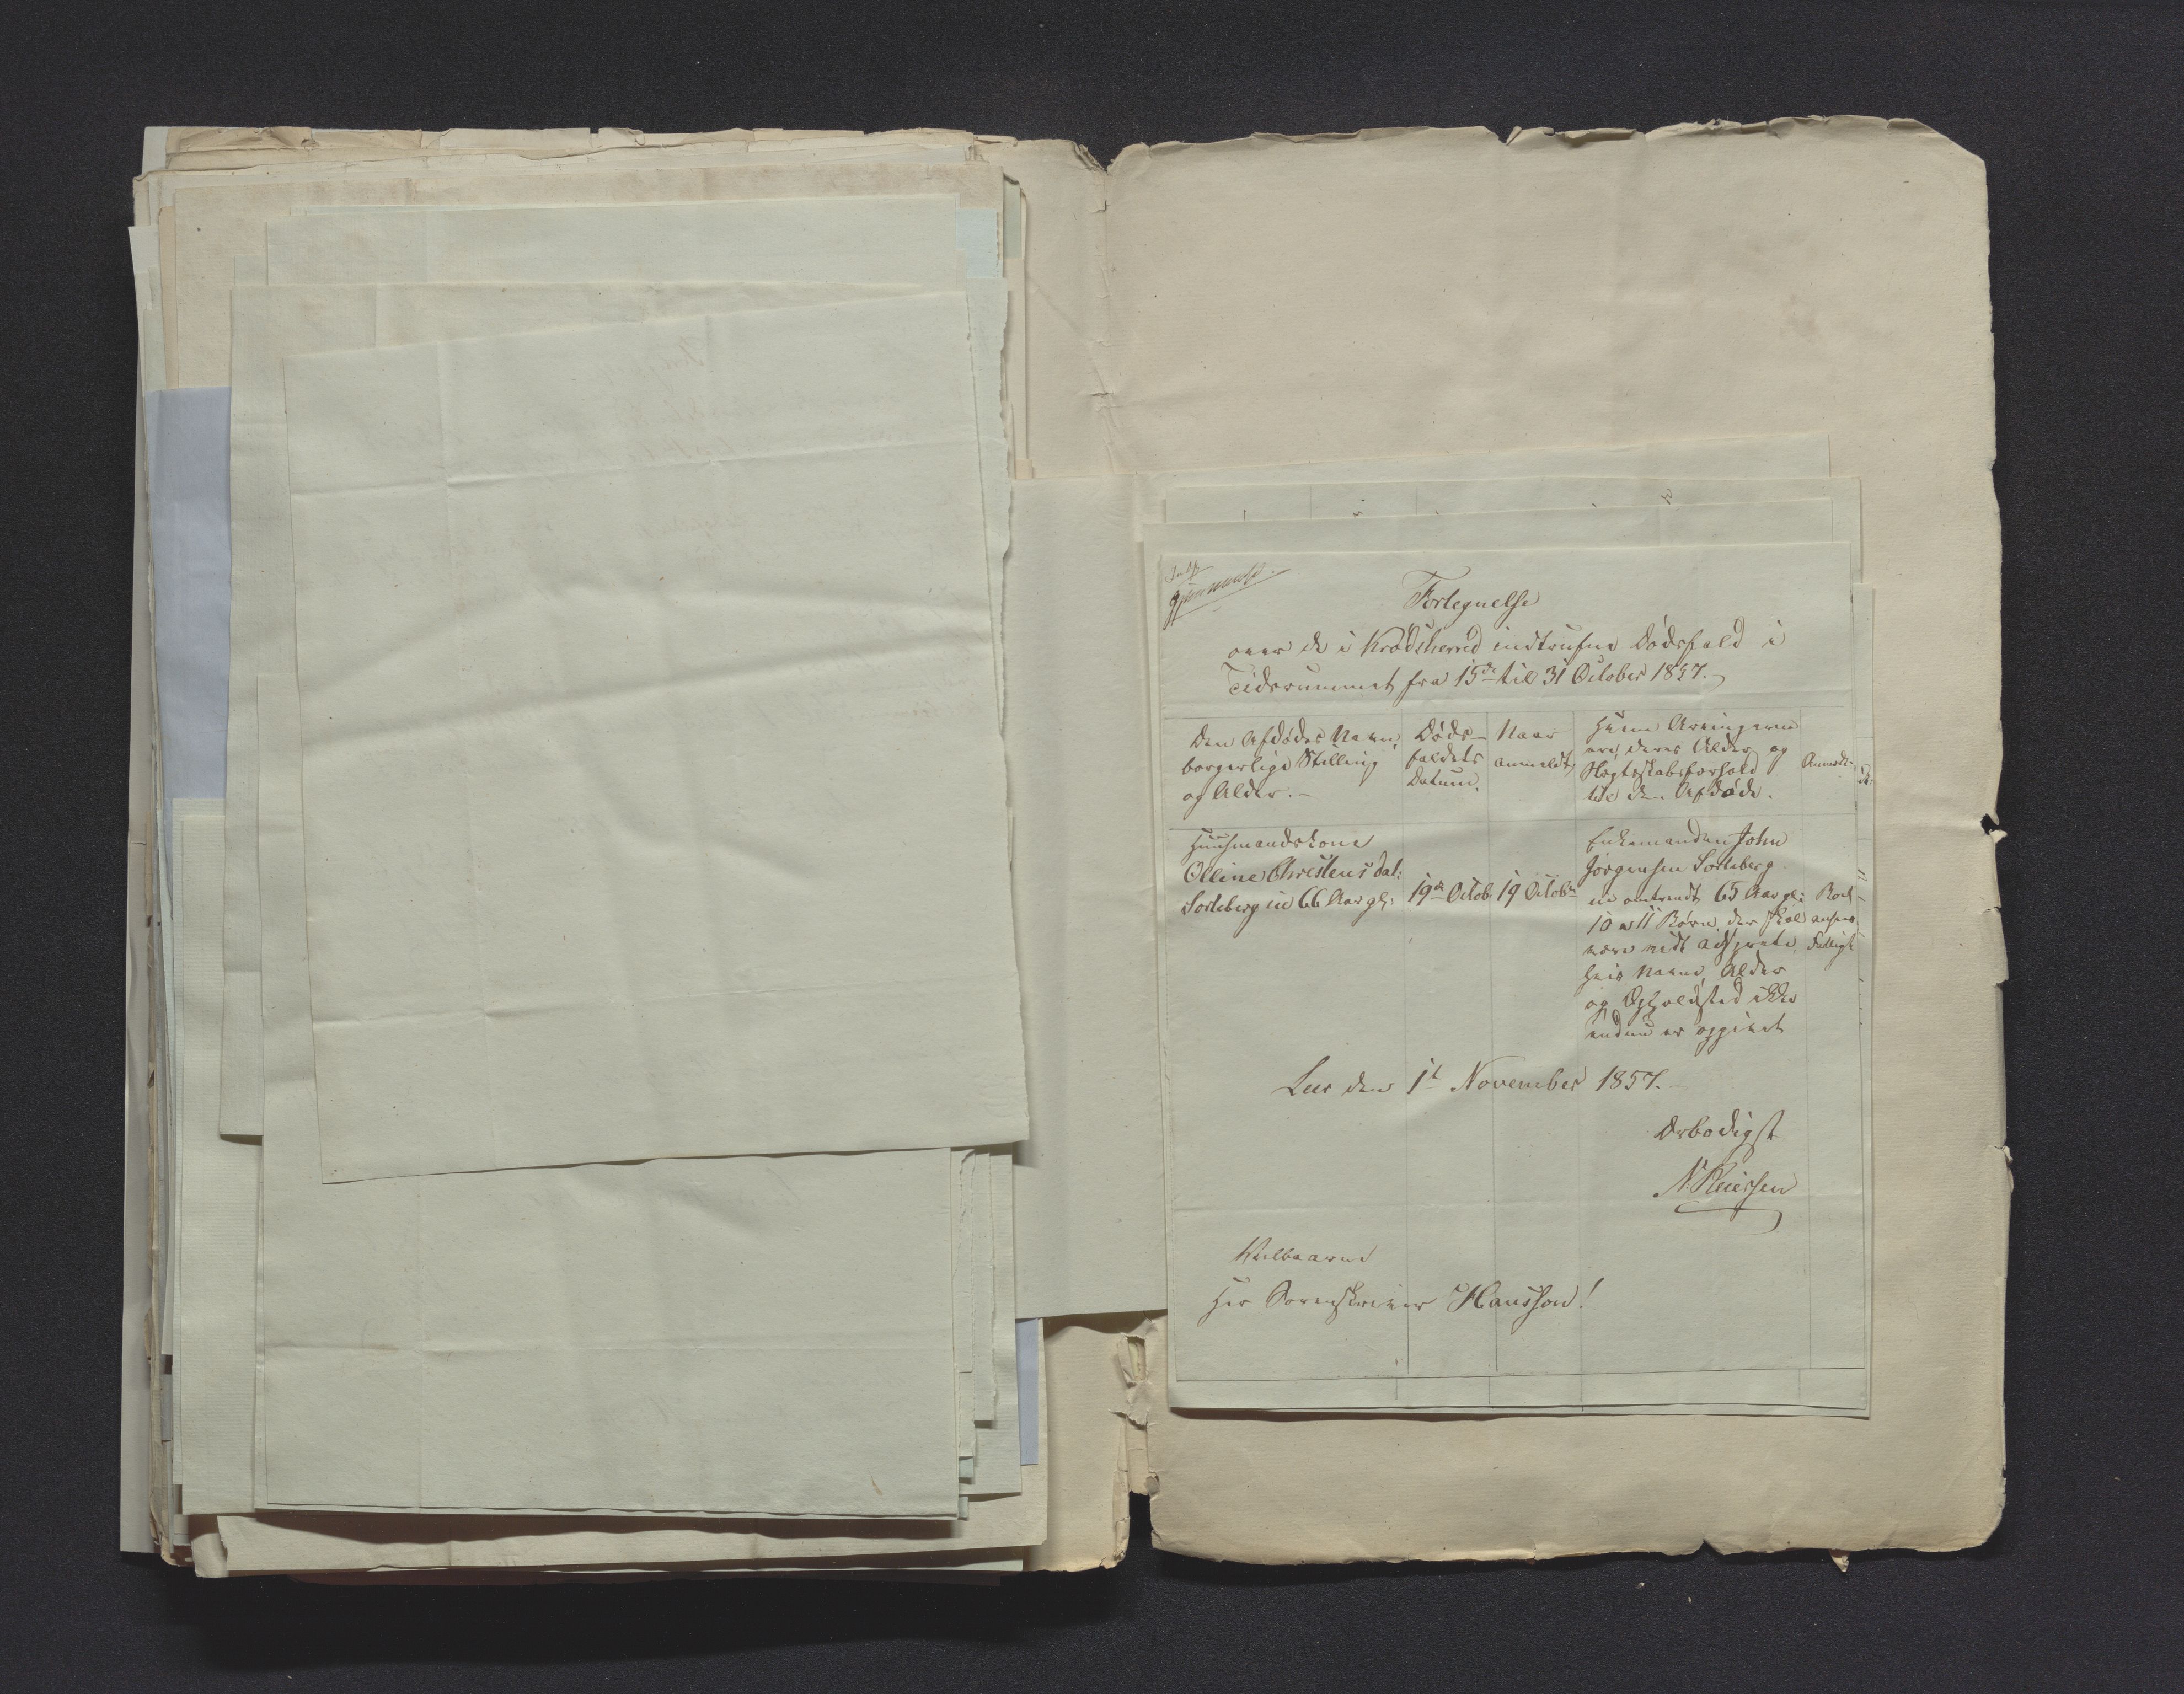 Fortegnelse
over de i Krødsherred indtrufne Dødsfald i
Tidsrummet fra 15de til 31 October 1857.
Den Afdødes Navn,
borgerlige Stilling
og Alder.
Døds-
faldets
Datum.
Naar
anmeldt,
Hvem Arvingerne
ere, deres Alder og
Slægtskabsforhold
til den Afdøde.
Anmærk-
Huusmandskone
Olline Christensdat:
Sorteberg ie 66 Aar gl:
19de Octob.
19 Octobr
Enkemanden John
Jørgensen Sorteberg
ie omtrendt 65 Aar gl:
10 a 11 Børn, der skal
være vidt adspredte,
hvis Navne, Alder
og Opholdsted ikke
endnu er opgivet
Boet
ansees
fattigt
Lur den 1t November 1857.
Ærbødigst
N. Reiersen
Velbaarne
Her Sorenskriver Hansson!